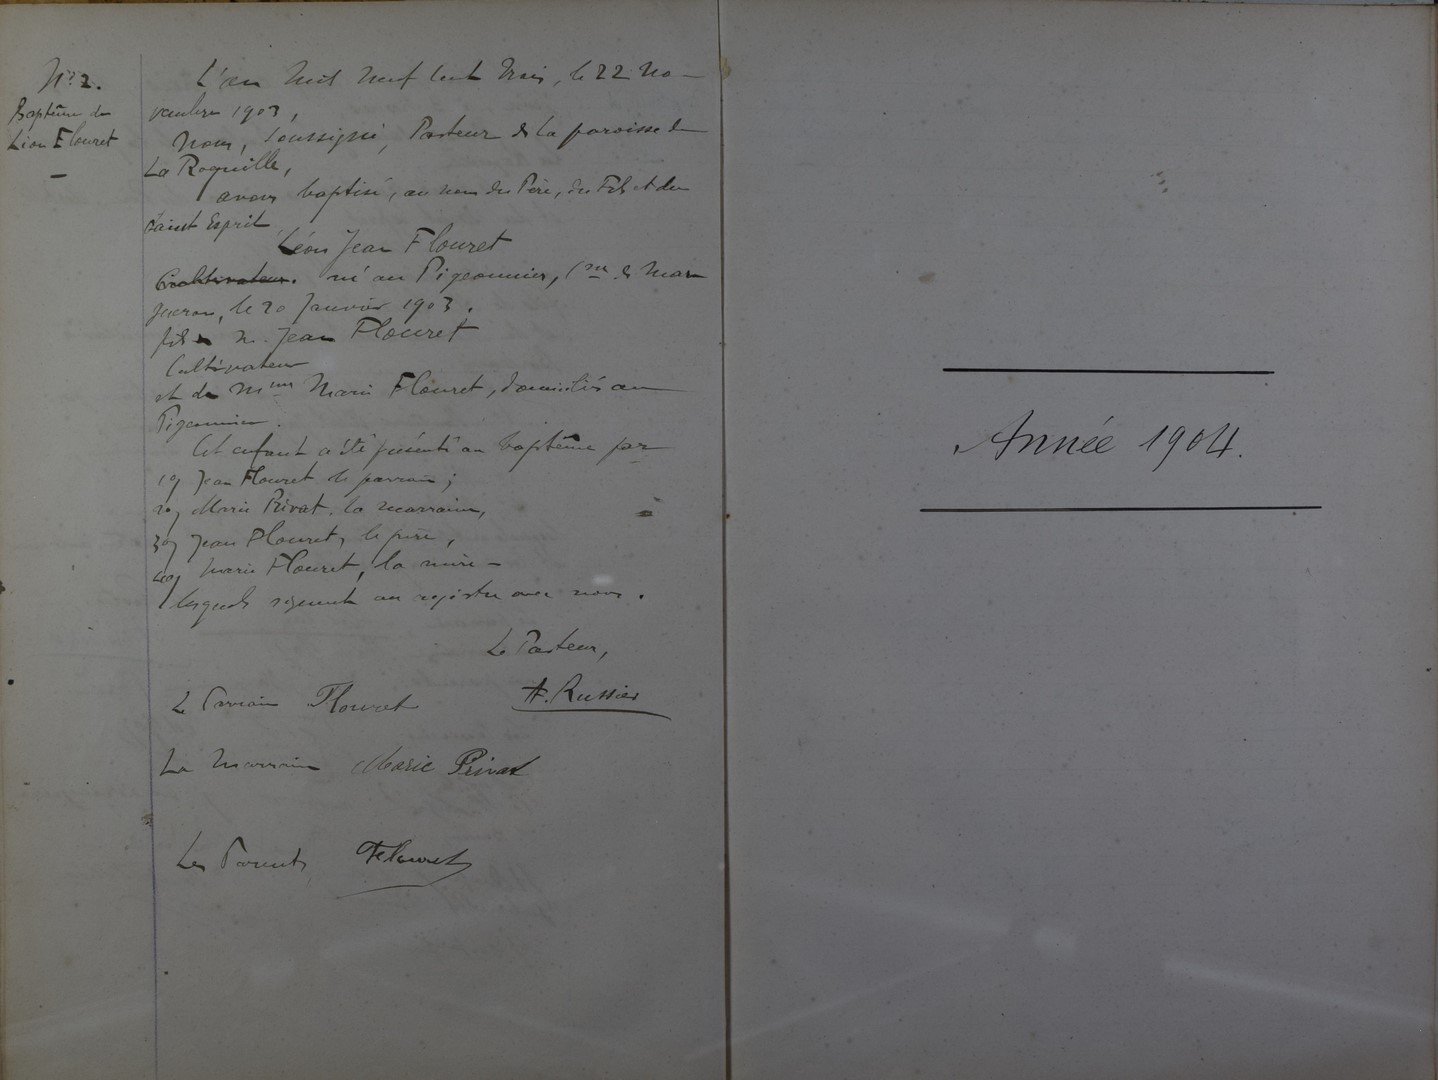 N° 2.
Baptême de
Léon Flouret
L'an Mil Neuf Cent Trois, le 22 No-
vembre 1903,
Nous, soussigné, Pasteur de la paroisse de
La Roquille,
avons baptisé, au nom du Père, du Fils et du
Saint Esprit
Léon Jean Flouret
Cultivateur. né au Pigeonnier, Cne de Mar
gueron, le 20 Janvier 1903.
fils de M. Jean Flouret
Cultivateur
et de Mme Marie Flouret, domiciliés au
Pigeonnier.
Cet enfant a été présenté au baptême par
1°/ Jean Flouret le parrain;
2°/ Marie Privat, la marraine,
3°/ Jean Flouret, le père,
4°/ Marie Flouret, la mère -
lesquels signent au registre avec nous.
Le Pasteur,
A. Russier
Le Parrain Flouret
La Marraine Marie Privat
Les Parents Flouret
Année 1904.